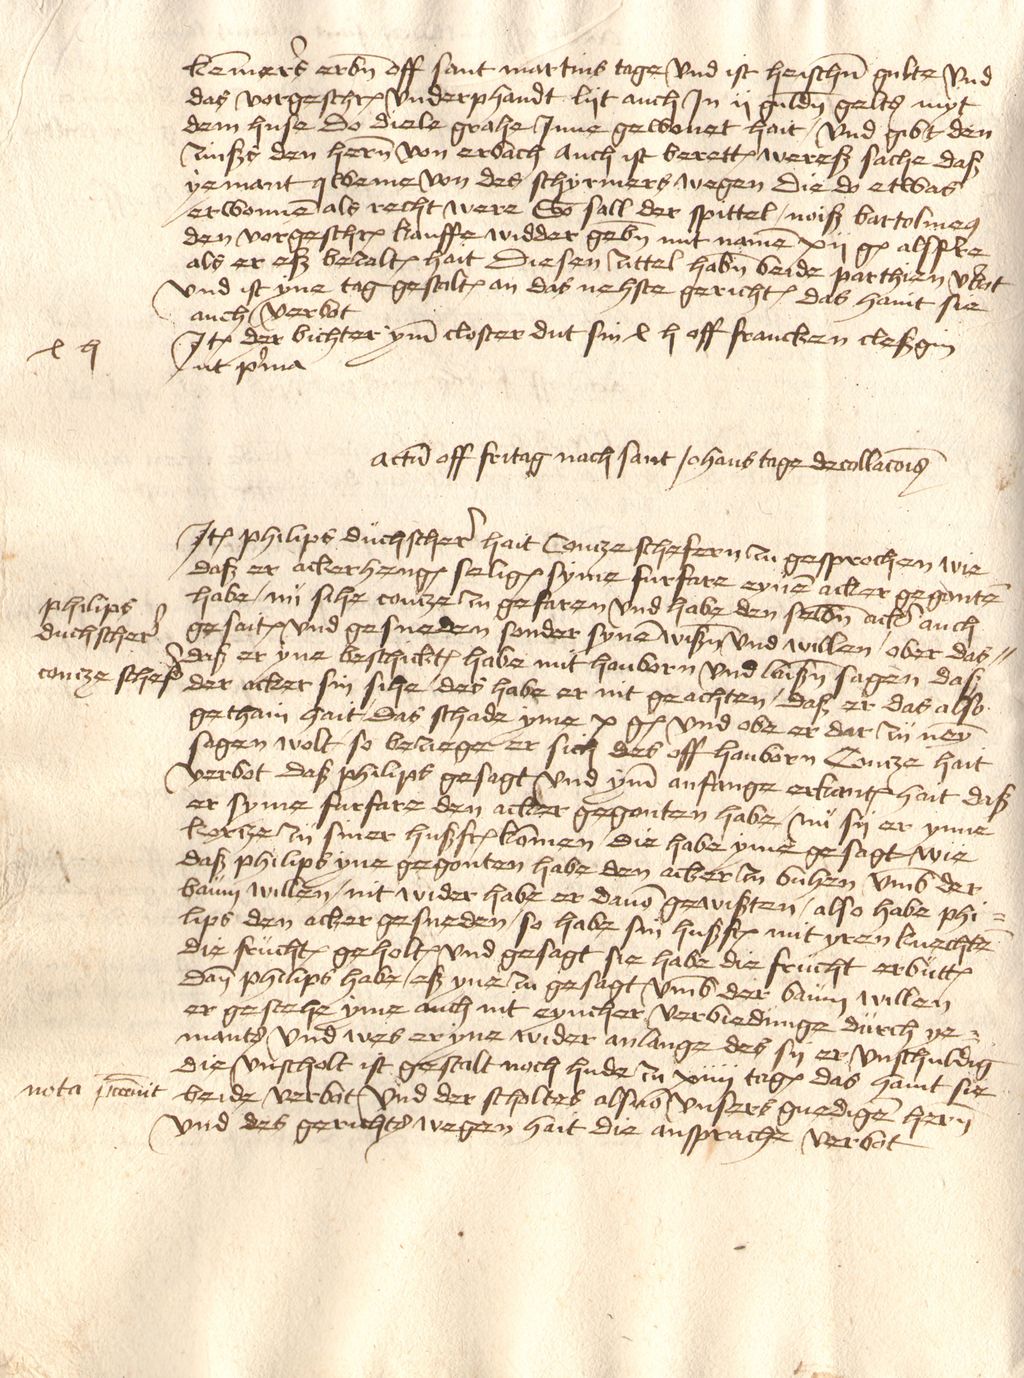 kemerers erbn off sant martins tage und ist heischen gulte und
das vorgeschr underphandt lyt auch in ii guldn gelts myt
dem huse do diele grahe inne gewonet hait / und gibt den
zinßs den hern von erbach auch ist berett wereß sache daß
yemant qweme von des schyrmers wegen die do etwas
erwonnen als recht were So sall der spittel / noiß bartolmeus
den vorgeschr kauffe widder gebn mit namen xii g alsfße
als er eß bezalt hait diesen zittel habn beide parthien verbot
und ist yne tag gestalt an das nehste gericht das haint sie
auch verbot
x h
It der bichter ym closter dut sin x h off francken cleßgin
ut prima
actum off fritag nach sant johans tage decollacois
It philips duchscherer hait Contze schefern zu gesprochen wie
daß er ackerheng selig syme furfare eynen acker gegonten
philips
duchscherer
contze schefer
habe / nu sihe contze zu gefaren und habe den selbn acker auch
geseit und gesneden sonder synen wißn und willen / ober das
daß er yne beschickt habe mit hanborn und laißn sagen daß
der acker sin sihe / des habe er nit geachten / daß er das also
gethain hait / das schade yme x g und obe er dar zu neyn
sagen wolt so bezuege er sich des off hanborn Contze hait
verbot daß philips gesagt und ym anfange erkant hait daß
er syme furfare den acker gegonten habe / nu sij er ynne
kortze zu siner hußf komen die habe yme gesagt wie
daß philips yne gegonten habe den acker zu buhen umb der
baum willen / nit wider habe er davon gewißten / also habe phi=
lips den acker gesneden / so habe sin hußf mit yren knechten
die frucht geholt und gesagt sie habe die frucht erbutt
dan philips habe eß yne zu gesagt umb der baum willen
er gestehe yme auch nit eyncher verbiedunge durch ye=
mants und wes er yne wider anlange des sij er unschuldig
die unscholt ist gestalt noch hude zu xiiii tag das haint sie
nota
beide verbot und der scholtes also von unsers gnedigen hern
und des gerichts wegen hait die ansprache verbot